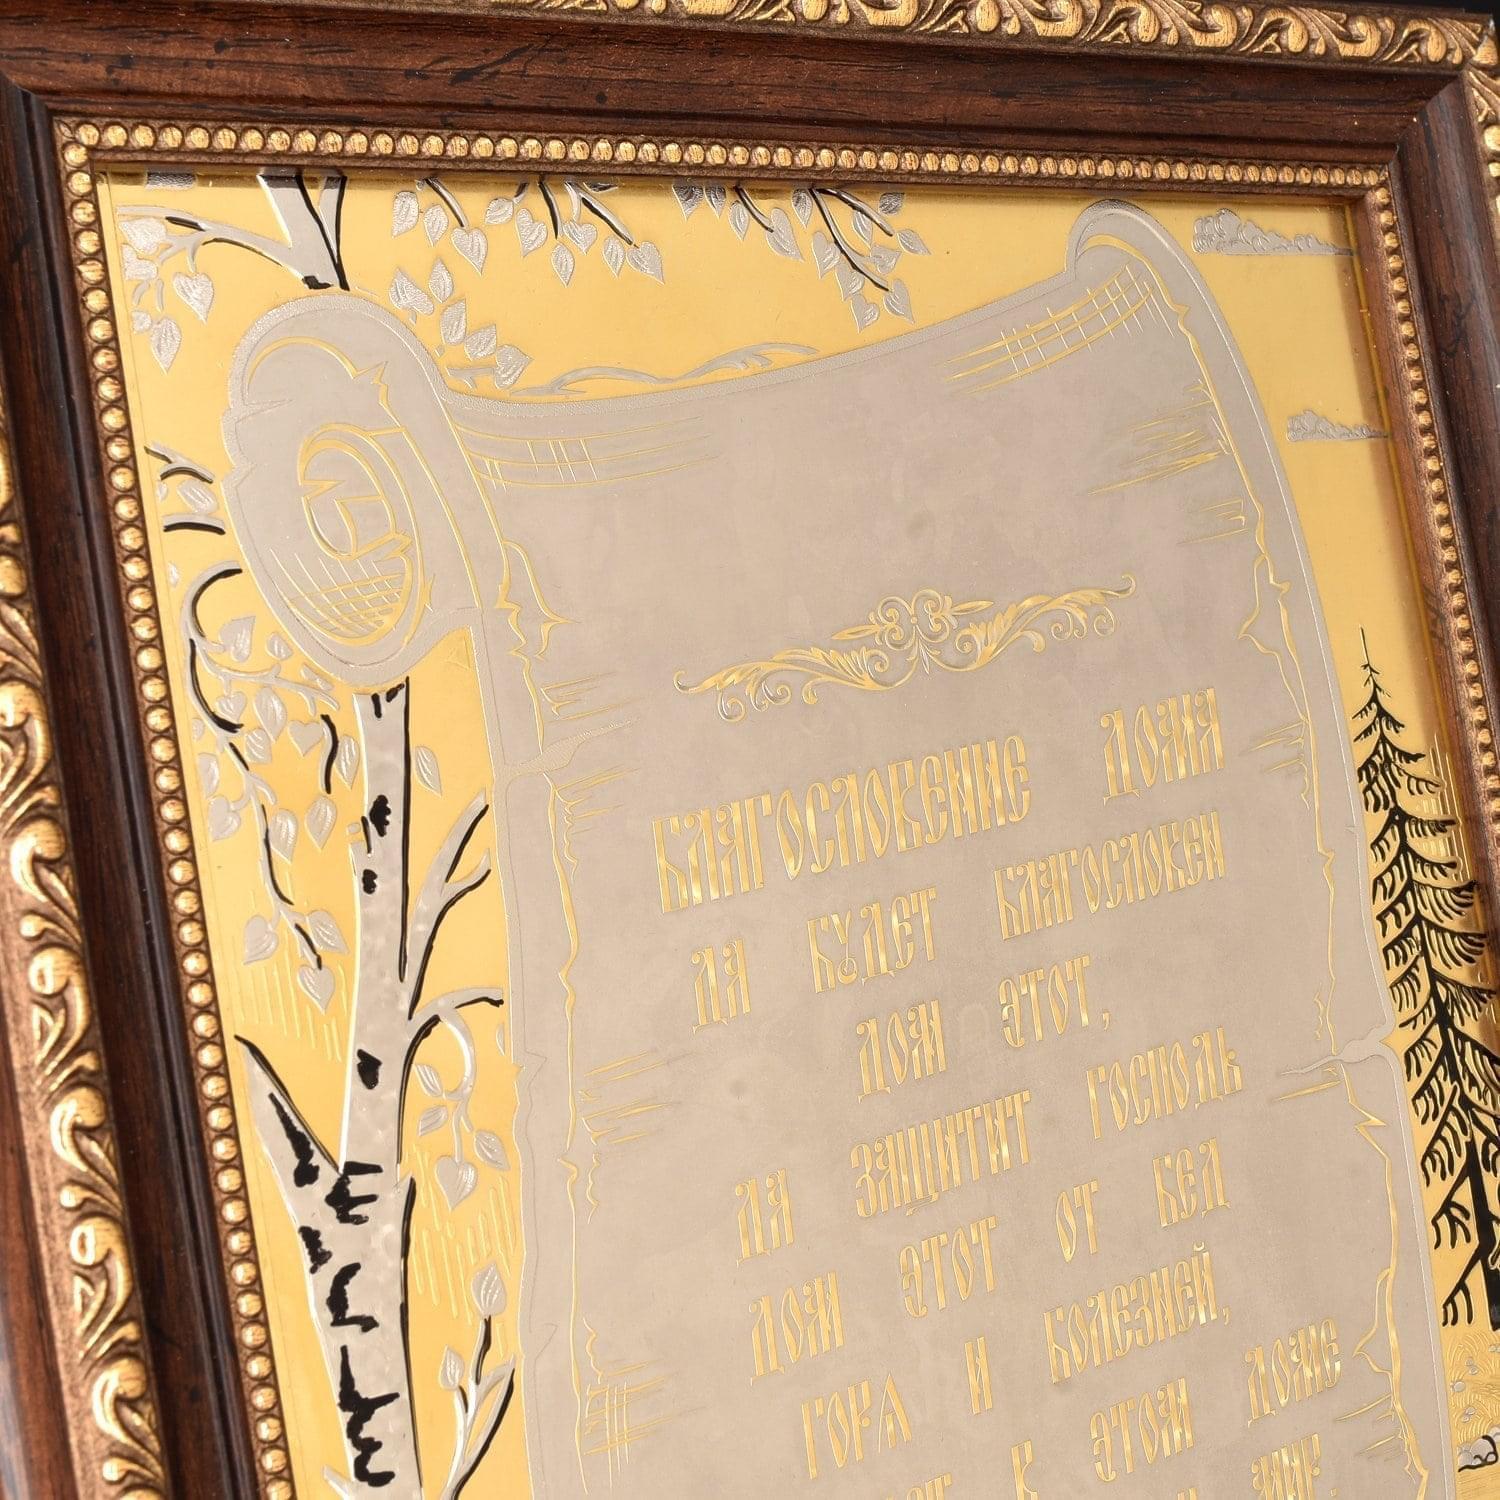 БЛАГОСЛОВЕНИЕ ДОМА
ДА БУДЕТ БЛАГОСЛОВЕН
ДОМ ЭТОТ,
ДА ЗАЩИТИТ ГОСПОДЬ
ДОМ ЭТОТ ОТ БЕД
ГОРЯ И БОЛЕЗНЕЙ,
В ЭТОМ ДОМЕ
МИР.